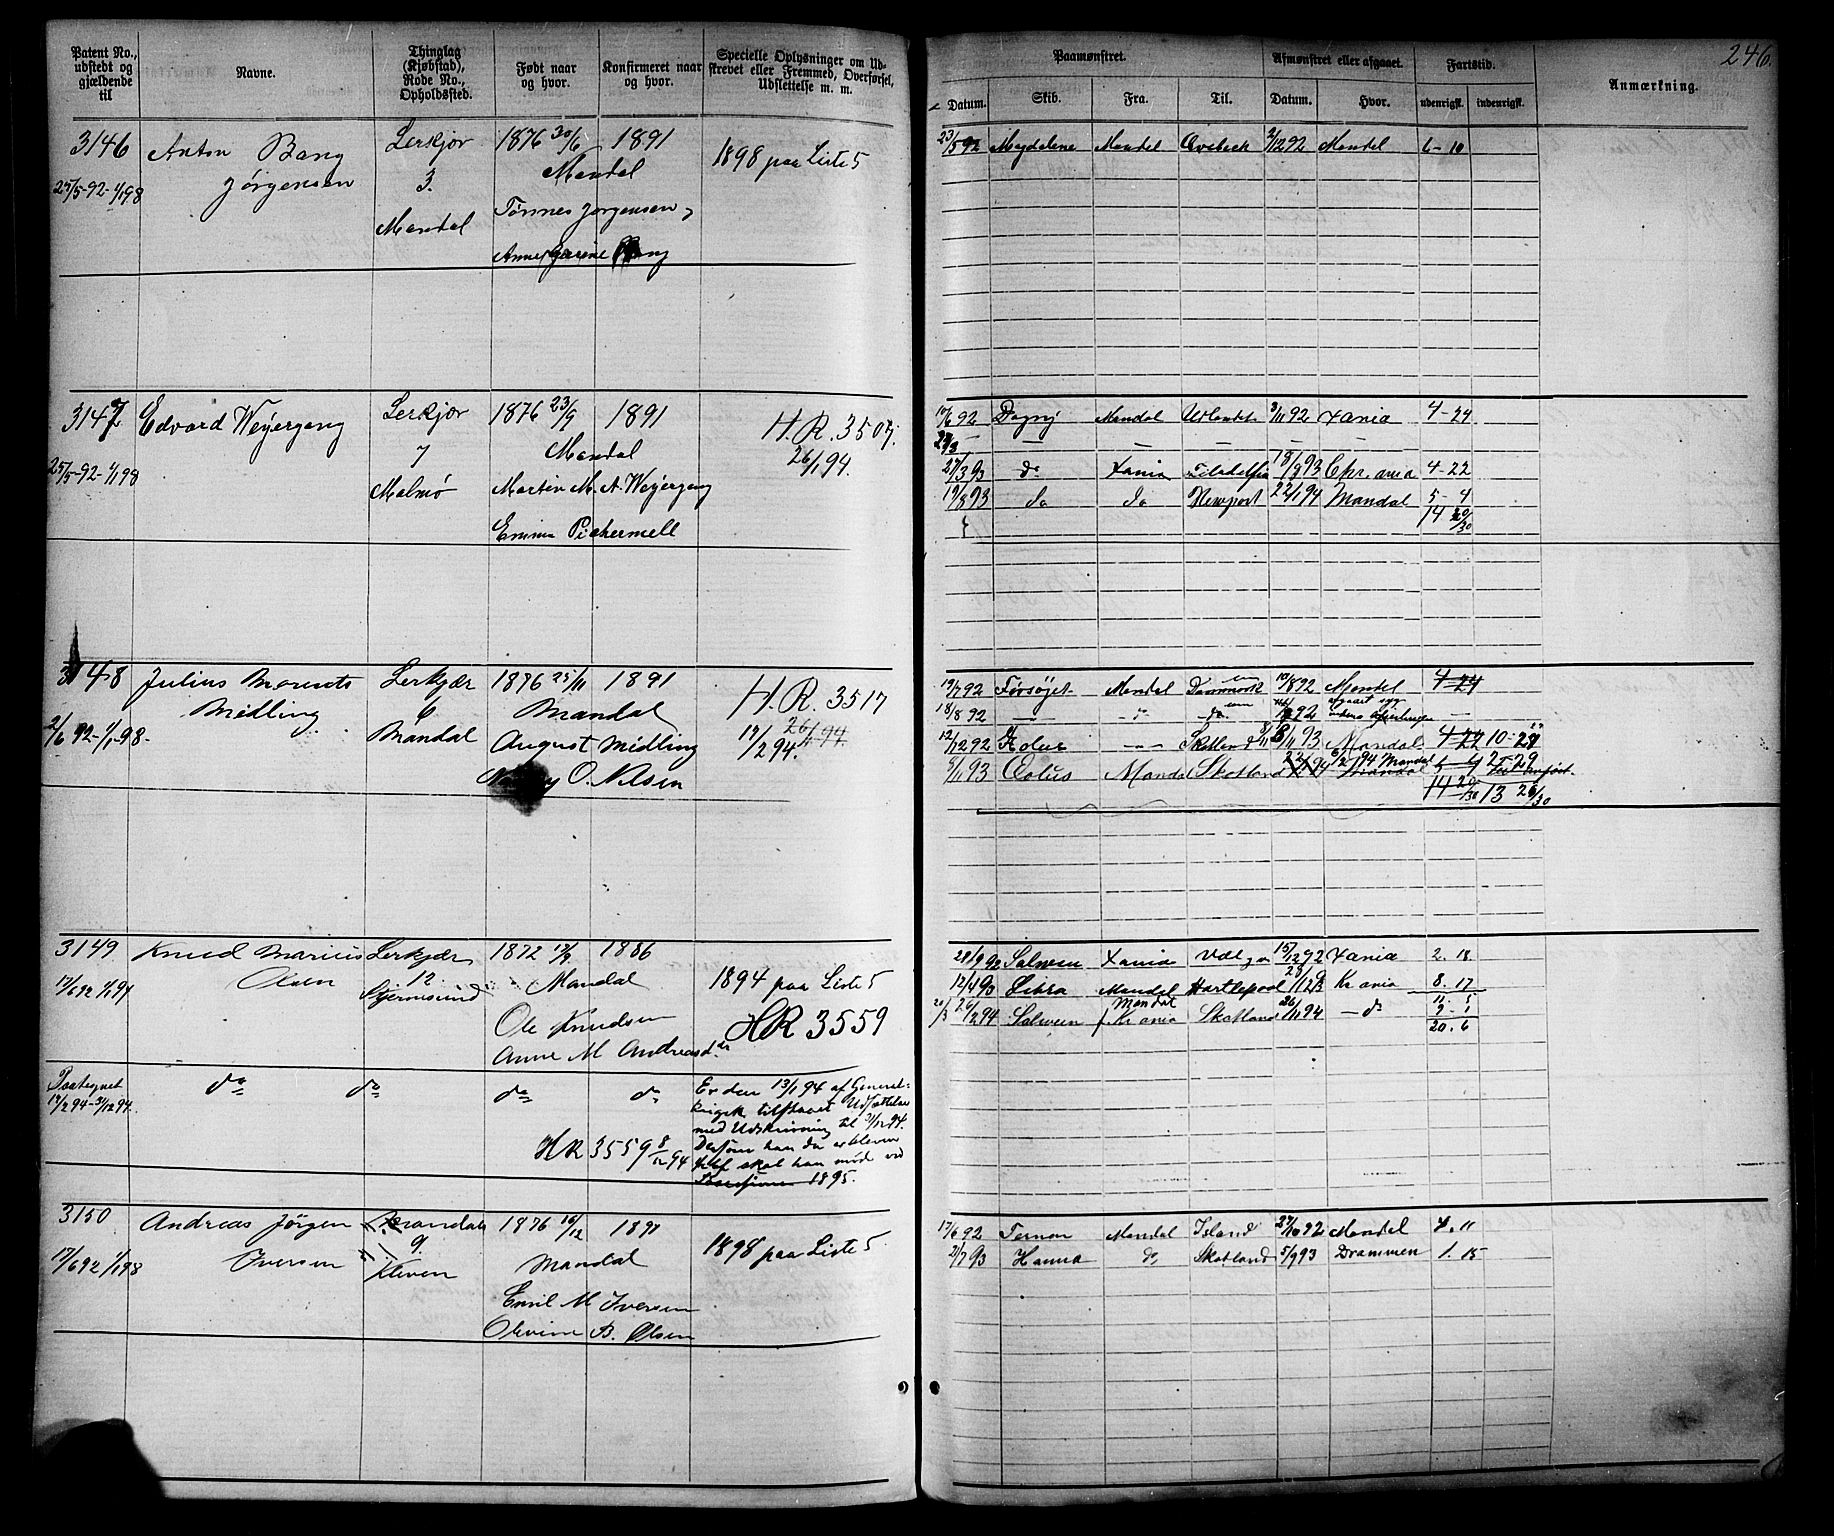 246.
Patent No., udstedt og gjældende til
Navne.
Thinglag (Kjøbstad), Rode No., Opholdssted.
Født naar og hvor.
Konfirmeret naar og hvor.
Specielle Oplysninger om Udskrevet eller Fremmed, Overførsel, Udslettelse m. m.
Paamønstret.
Afmønstret eller afgaaet.
Fartstid.
Anmærkning.
Datum. Skib. Fra. Til. Datum. Hvor. udenrigsk. indenrigsk.
3146 Anton Bang Lerkjær 1876 30/6 1891 1898 paa Liste 5
Jørgensen 3. Mandal
25/5-92-1/1 98 Mandal Tønnes Jørgensen,
Bang
23/5 92 Magdalene Mandal 2/12 92 Mandel 6-10
3147 Edvard Weyergang Lerkjær 1876 23/9 1891 H.R. 3507.
7 Mandal 26/1 94.
25/5-92-1/1 98 Malmø Martin M. A. Weyergang
Emma Pichermell
17/6 92 Dagny Mandal Udlandet 3/11 92 Xania 4-24
27/3 93 do Xania Filadelfia 18/9 93 Chr.ania 4-22
19/8 93 do do Newport 22/1 94 Mandal 5-4
14 20/30
3148 Julius Morents Lerkjær 1876 25/11 1891 H.R. 3517
Midling 6 Mandal 17/2 94. 26/1 94.
2/6 92-1/1-98. Mandal August Midling
O. Nilsen
19/7 92 Forsøget Mandal Danmark 10/8 92 Mandel 4-24
18/8 92 — do do 92 afgaaet syg
12/12 92 Skotland 8/11 93 Mandal 4-22 10-27
9/11 93 Æolus Mandal Skotland 22/1 94 6/2 94 Mandal 5-4 2-29
14 20/30 13 26/30
3149 Knud Marius Lerkjær 1872 17/9 1886
Olsen 12 Mandal 1894 paa Liste 5
17/6 92 1/1 97 Ole Knudsen HR 3559
Anne M Andreasd.
28/9 92 Salveen Xania 15/12 92 Xania 2. 18.
12/4 93 Libra Mandal Hartlepool 28/12 93 Kr.ania 8. 17
11. 5
26/2 94 Salveen Mandal f. Kr.ania Skotland 26/11 94 — do 9. 1
20. 6
Paategnet do do do do Er den 13/1 94 af General-
17/2 94-31/12 94. tilstaaet Udsættelse
med Udskrivning til 31/12 94.
HR 3559 8/12 94 Dersom han da er bleven
skal han møde ved
1895.
3150 Andreas Jørgen Mandal 1876 10/12 1891
Iversen 9. Mandal 1898 paa Liste 5
17/6 92 1/1 98 Kleven Emil M Iversen
Olevine B. Olsen
17/6 92 Ternon Mandal Island 27/10 92 Mandal 4. 11
2/7 93 Hanna do Skotland 5/9 93 Drammen 1. 15